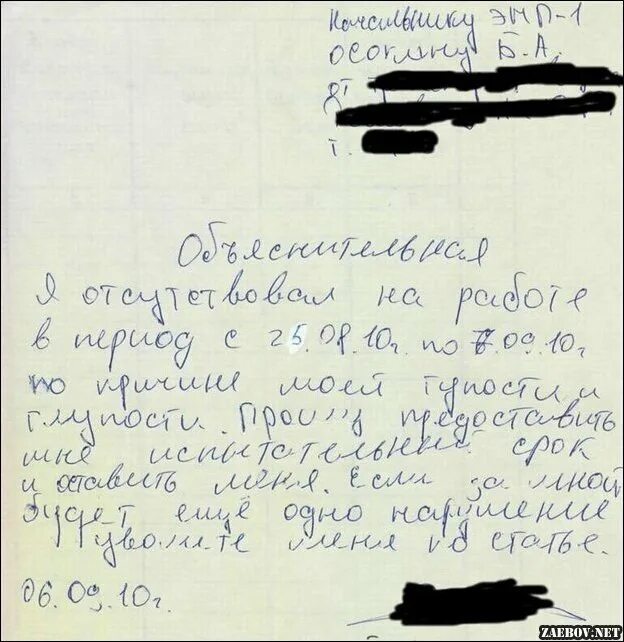 Начальнику ЭМП-1
Осокину Б.А.
от
т.
Объяснительная
Я отсутствовал на работе
в период с 25.08.10г. по 6.09.10г
по причине моей тупости и
глупости. Прошу предоставить
мне испытательный срок
и оставить меня. Если за мной
будет ещё одно нарушение
увольте меня по статье.
06.09.10г.
ZAEBOV.NET